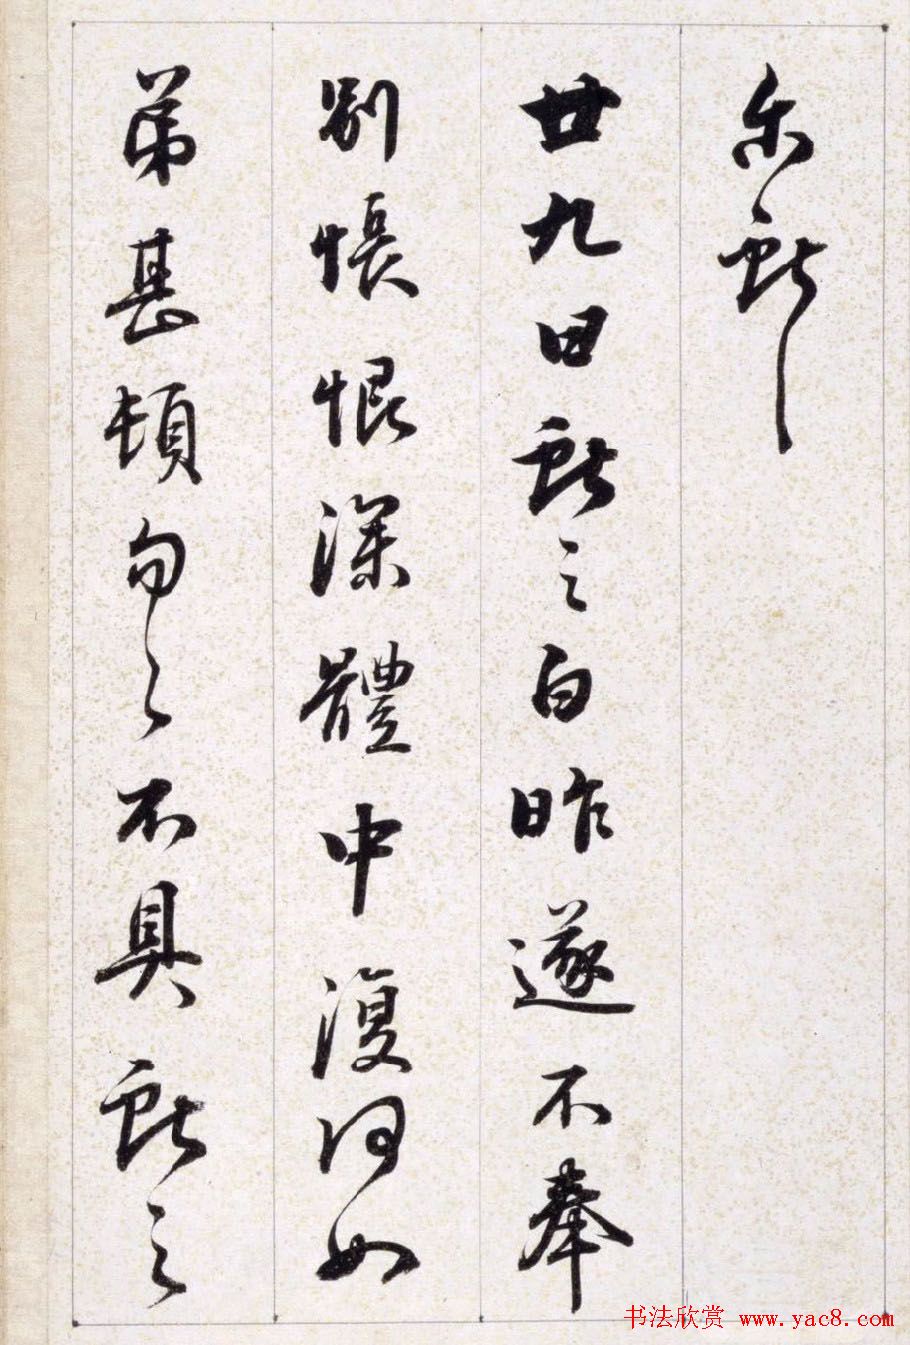 獻
廿九日獻之白昨遂不奉
別悵恨深體中復何如
弟甚頓匆匆不具獻之
书法欣赏 www.yac8.com